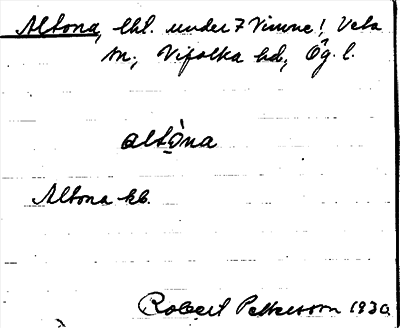 Altona, lht. under 7 Vimne! Veta
sn; Vifolka hd, Ög. l.
altòna
Altona kb.
Robert Pettersson 1930